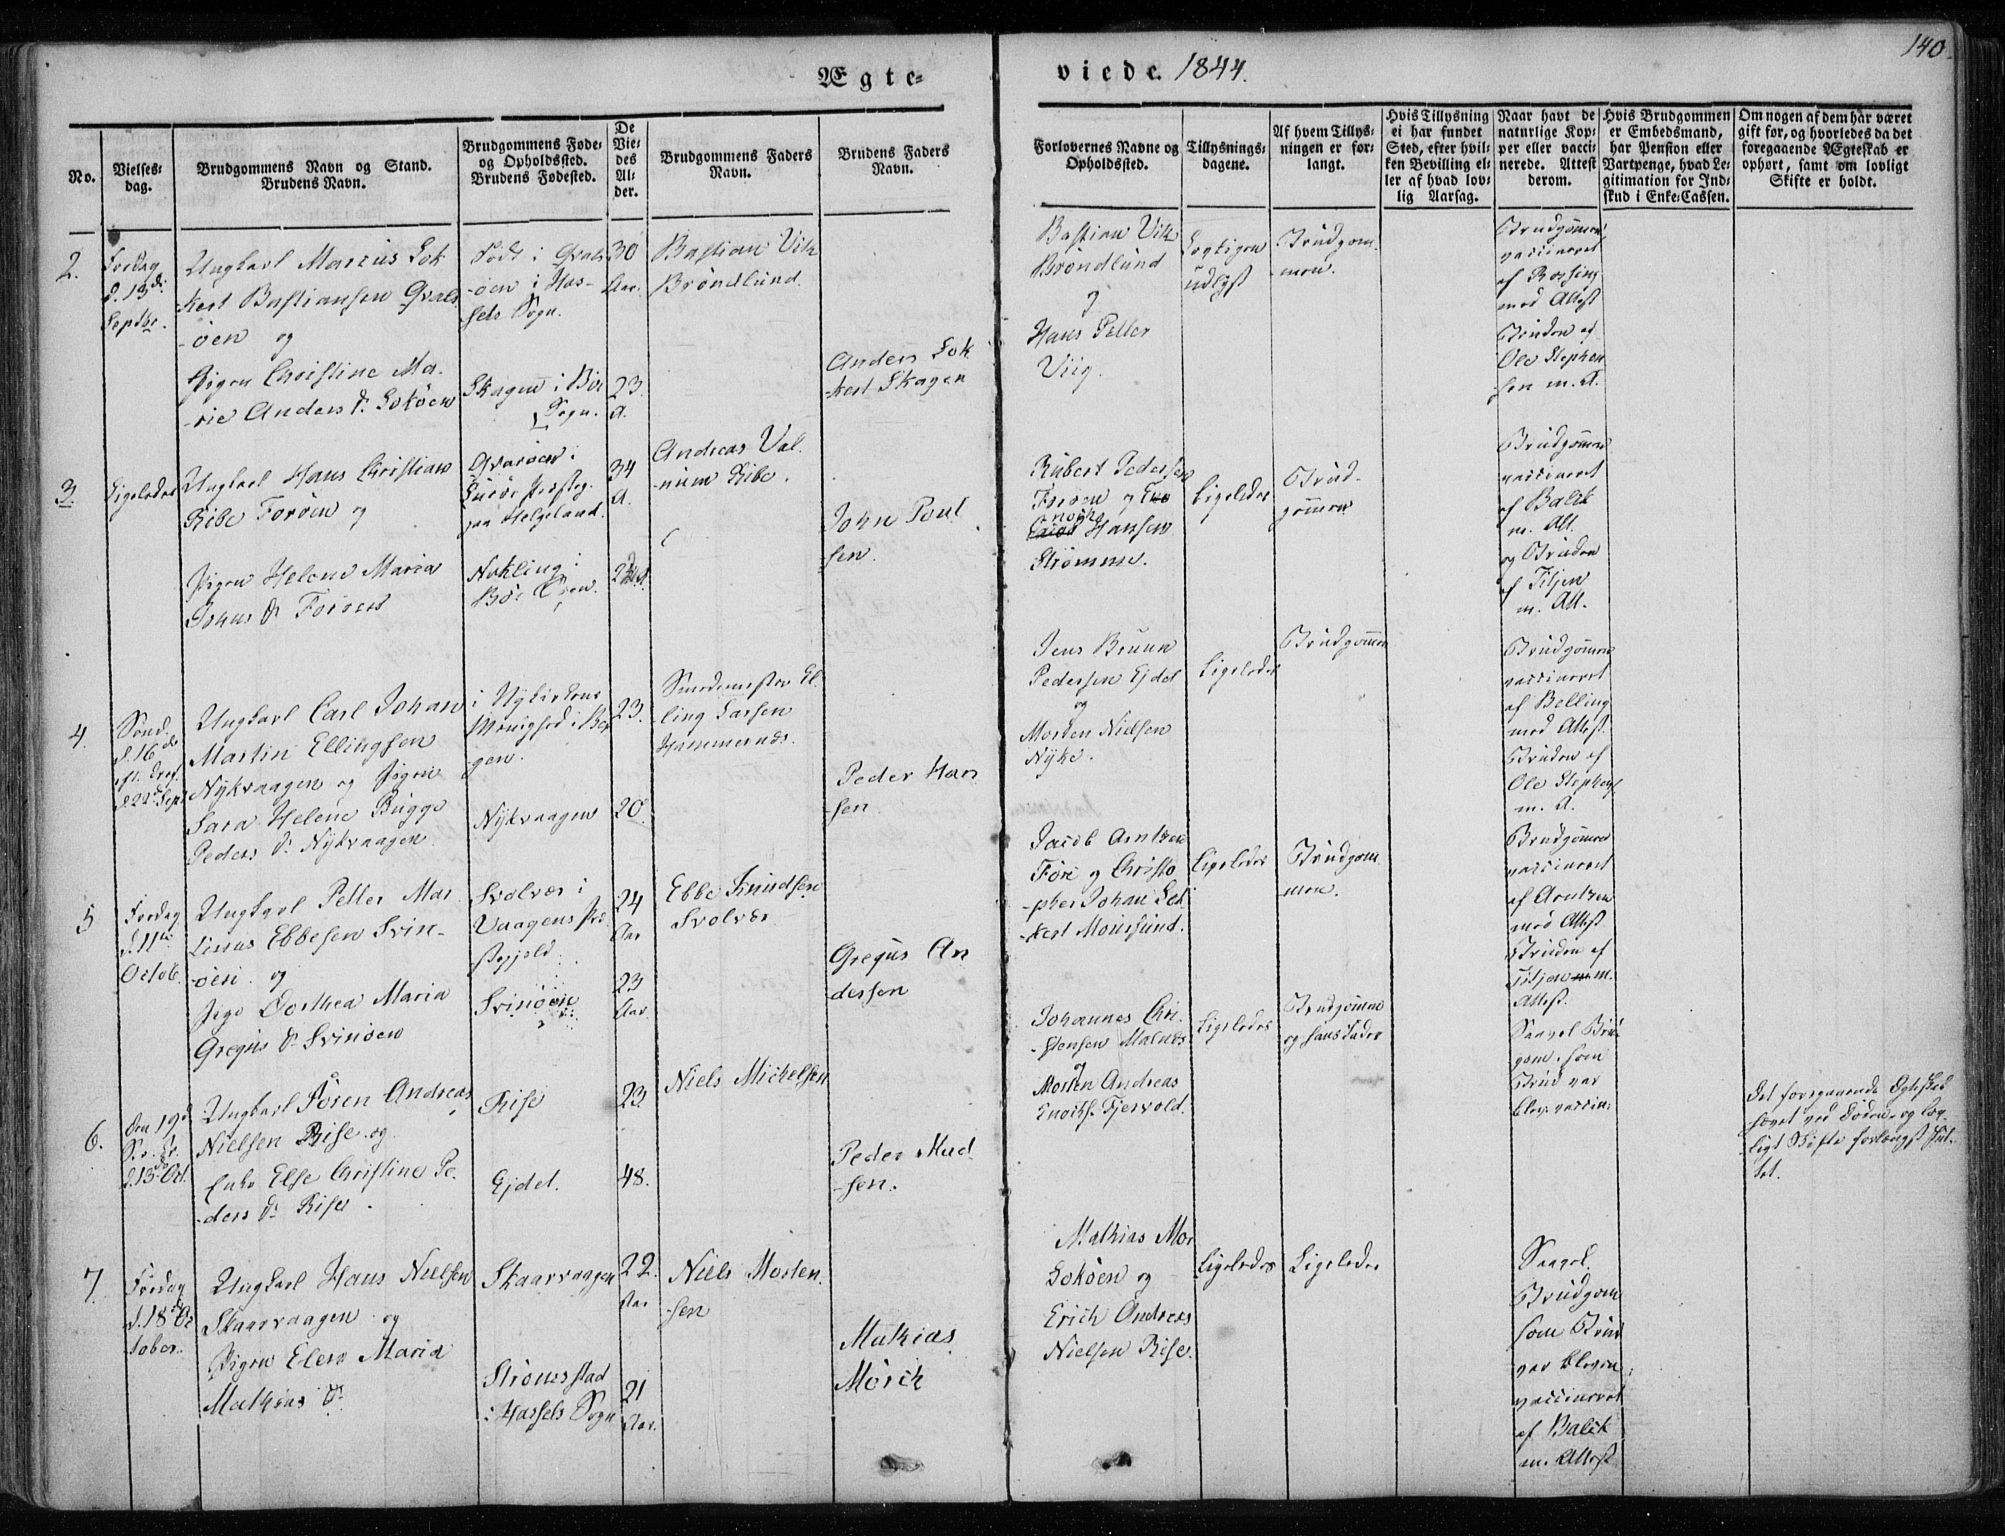 140.
Ægte-
viede. 1844.
No.
Vielses-
dag.
Brudgommens Navn og Stand.
Brudens Navn.
Brudgommens Føde-
og Opholdssted.
Brudens Fødested.
De
Vie-
des
Al-
der.
Brudgommens Faders
Navn.
Brudens Faders
Navn.
Forlovernes Navne og
Opholdssted.
Tillysnings-
dagene.
Af hvem Tillys-
ningen er for-
langt.
Hvis Tillysning
ei har fundet
Sted, efter hvil-
ken Bevilling el-
ler af hvad lov-
lig Aarsag.
Naar havt de
naturlige Kop-
per eller vacci-
nerede. Attest
derom.
Hvis Brudgommen
er Embedsmand,
har Pension eller
Vartpenge, hvad Le-
gitimation for Ind-
skud i Enke-Cassen.
Om nogen af dem har været
gift før, og hvorledes da det
foregaaende Ægteskab er
ophørt, samt om lovligt
Skifte er holdt.
2.
Fredag
d. 13de
Septbr.
Ungkarl Marcus Lok
-kert Bastiansen Qvals
-öen og
Pigen Christine Ma-
-rie Anders D. Loköen
Född i Qvals
-öen i Has-
sels Sogn.
Skagen i Böe
Sogn.
30
Aar.
23.
A.
Bastian Vik
Bröndlund.
Anders Lok
-kert Skagen
Bastian Vik
Bröndlund
og
Hans Petter
Viig.
Lovligen
udlyst
Brudgom-
men.
Brudgommen
vaccineret
af Rossing
med Attest
Bruden af
Ole Stephen
sen m. A.
3.
Ligeledes
Ungkarl Hans Christian
Ribe Foröen og
Pigen Helene Maria
Johns D. Foröen
Qvaröen i
Luröe Præsteg.
paa Helgeland.
Nykling i
Böe Sogn.
34
A.
Andreas Val-
-num Ribe.
John Poul
sen.
Rubert Pedersen
Foröen og
Enochs
Hansen
Strömme.
Ligeledes
Brud-
gommen
Brudgommen
vaccineret
af Balik
m. Att.
og Bruden
af Tiljen
m. Att.
4.
Sönd.
d. 16de
eft. Tref.
d. 22de Sept
Ungkarl Carl Johan
Martin Ellingsen
Nykvaagen og Pigen
Sara Helene Bugge
Peders D. Nykvaagen
i Nykirkens
Menighed i Ber
gen.
Nykvaagen
23.
20.
Smedemester El-
ling Larsen
Hammernes.
Peder Han
sen.
Jens Bruun
Pedersen Ejdet
og
Morten Nielsen
Nyke.
Ligeledes
Brudgommen
Brudgommen
vaccineret
af Belling
med Attest.
Bruden af
Ole Stephens
m. A.
5
Fredag
d. 11te
Octob.
Ungkarl Petter Mar-
tinus Ebbesen Svin-
-öen og
Pige Dorthea Maria
Gregus D. Svinöen
Svolvær i
Vaagens Præ
stegjeld.
Svinöen
24
Aar
23
Aar.
Ebbe Knudsen
Svolvær
Gregus An
dersen
Jacob Arntzen
Före og Christo
-pher Johan Lok
-kert Möiesund.
Ligeledes
Brudgom
men.
Brudgommen
vaccineret
af Arntzen
med Attest
Bruden af
Tiljen m.
Attest.
6.
Den 19de
S. e. Tr.
d. 13de Oct.
Ungkarl Sören Andreas
Nielsen Rise og
Enke Else Christine Pe-
-ders D. Rise.
Rise
Ejdet.
23.
48.
Niels Michelsen
Peder Mad
-sen.
Johannes Chri-
-stensen Malnes
og
Morten Andreas
Enochs. Fjervold.
Ligeledes
Brudgommen
og hans Fader
Saavel Brud
gom. som
Brud var
blev. vaccin.
Det foregaaende Egteskab
hævet ved Döden, og lov-
ligt Skifte forlængst slut-
tet.
7.
Fredag
d. 18de Oc
tober.
Ungkarl Hans Nielsen
Skaarvaagen og
Pigen Elen Maria
Mathias D.
Skaarvaagen
Strömsstad
i Hassels Sogn
22.
Aar
21
Aar.
Niels Morten-
sen
Mathias
Mörch
Mathias Mör
Loköen og
Erich Andreas
Nielsen Rise.
Ligeledes
Ligeledes
Saavel
Brudgom
som Brud
var bleven
vaccineret
af Balik
m. Attest